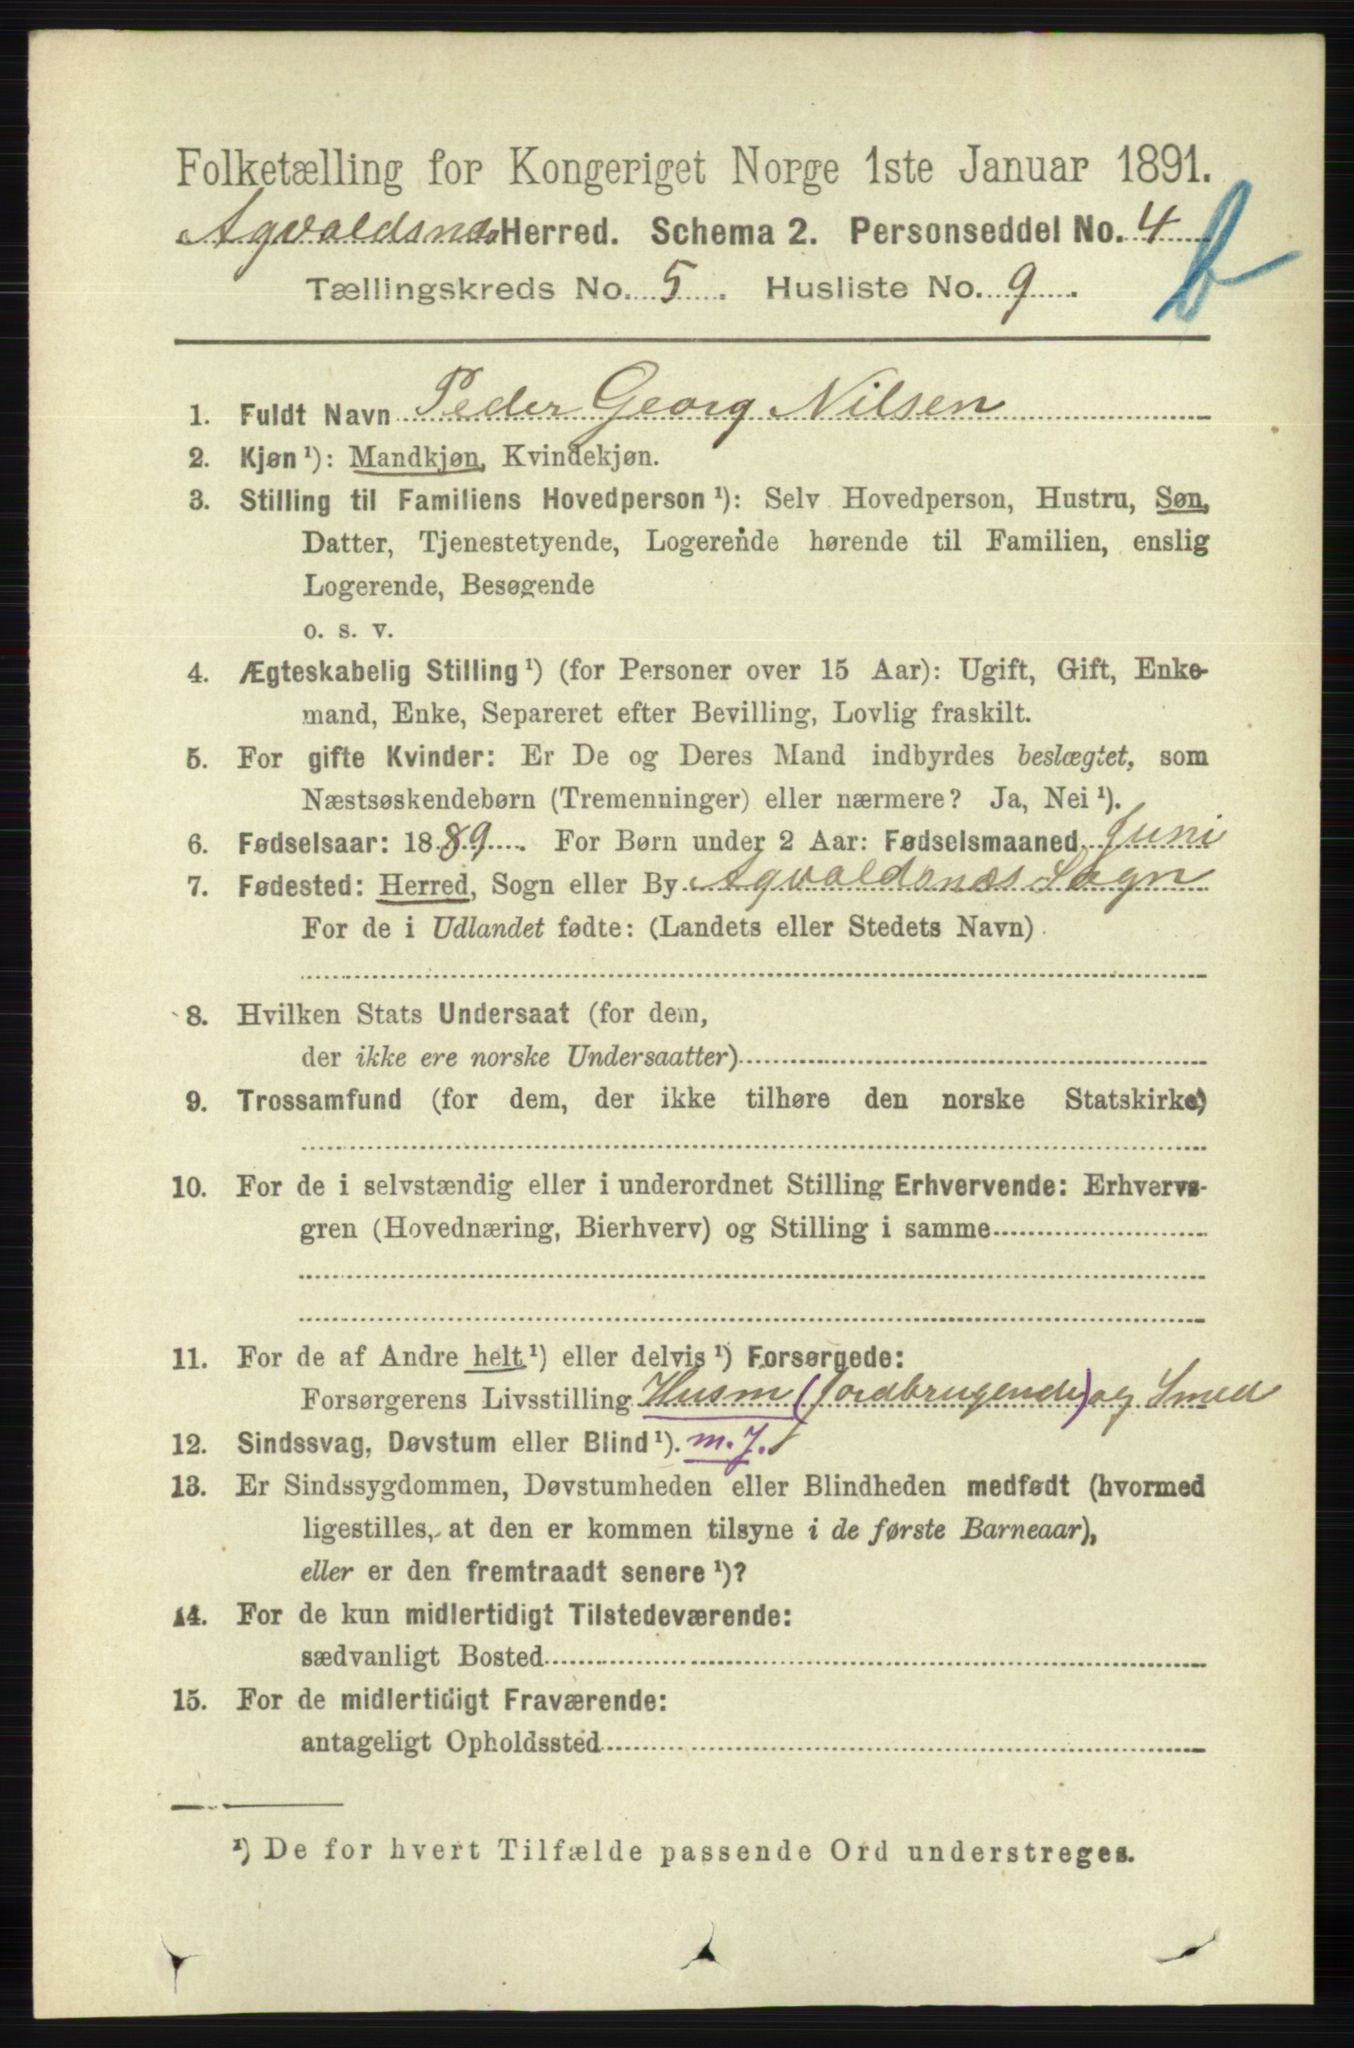 Folketælling for Kongeriget Norge 1ste Januar 1891.
Agvaldsnæs Herred. Schema 2. Personseddel No. 4
Tællingskreds No. 5. Husliste No. 9.
b
1. Fuldt Navn Peder Georg Nilsen
2. Kjøn ¹): Mandkjøn, Kvindekjøn.
3. Stilling til Familiens Hovedperson ¹): Selv Hovedperson, Hustru, Søn,
Datter, Tjenestetyende, Logerende hørende til Familien, enslig
Logerende, Besøgende
o. s. v.
4. Ægteskabelig Stilling ¹) (for Personer over 15 Aar): Ugift, Gift, Enke-
mand, Enke, Separeret efter Bevilling, Lovlig fraskilt.
5. For gifte Kvinder: Er De og Deres Mand indbyrdes beslægtet, som
Næstsøskendebørn (Tremenninger) eller nærmere? Ja, Nei ¹).
6. Fødselsaar: 1889. For Børn under 2 Aar: Fødselsmaaned Juni
7. Fødested: Herred, Sogn eller By Agvaldsnæs Sogn
For de i Udlandet fødte: (Landets eller Stedets Navn)
8. Hvilken Stats Undersaat (for dem,
der ikke ere norske Undersaatter)
9. Trossamfund (for dem, der ikke tilhøre den norske Statskirke)
10. For de i selvstændig eller i underordnet Stilling Erhvervende: Erhvervs-
gren (Hovednæring, Bierhverv) og Stilling i samme
11. For de af Andre helt ¹) eller delvis ¹) Forsørgede:
Forsørgerens Livsstilling Husm (Jordbrugende) og Smed
12. Sindssvag, Døvstum eller Blind ¹). m. J.
13. Er Sindssygdommen, Døvstumheden eller Blindheden medfødt (hvormed
ligestilles, at den er kommen tilsyne i de første Barneaar),
eller er den fremtraadt senere ¹)?
14. For de kun midlertidigt Tilstedeværende:
sædvanligt Bosted
15. For de midlertidigt Fraværende:
antageligt Opholdssted
¹) De for hvert Tilfælde passende Ord understreges.